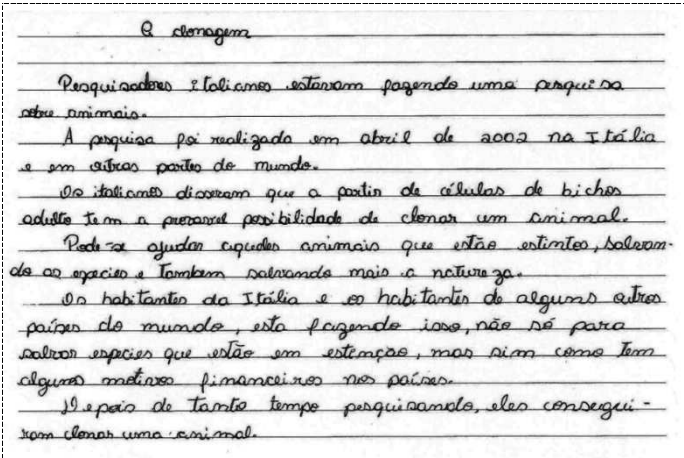 A clonagem
Pesquisadores italianos estavam fazendo uma pesquisa
sobre animais.
A pesquisa foi realizada em abril de 2002 na Itália
e em outras partes do mundo.
Os italianos disseram que a partir de células de bichos
adulto tem a provavel possibilidade de clonar um animal.
Pode-se ajudar aqueles animais que estão estintos, salvan-
do as especies e Tambem salvando mais a natureza.
Os habitantes da Itália e os habitantes de alguns outros
países do mundo, esta fazendo isso, não só para
salvar especies que estão em estenção, mas sim como Tem
alguns motivos financeiros nos países.
Depois de tanto tempo pesquisando, eles consegui-
ram clonar uma animal.